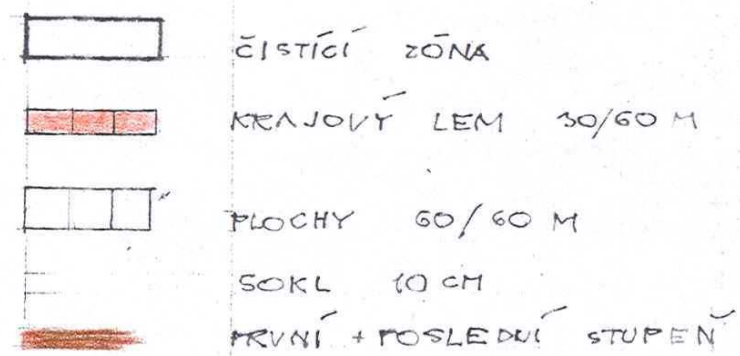 ČISTÍCÍ ZÓNA
KRAJOVÝ LEM 30/60 M
PLOCHY 60/60 M
SOKL 10 CM
PRVNÍ + POSLEDNÍ STUPEŇ